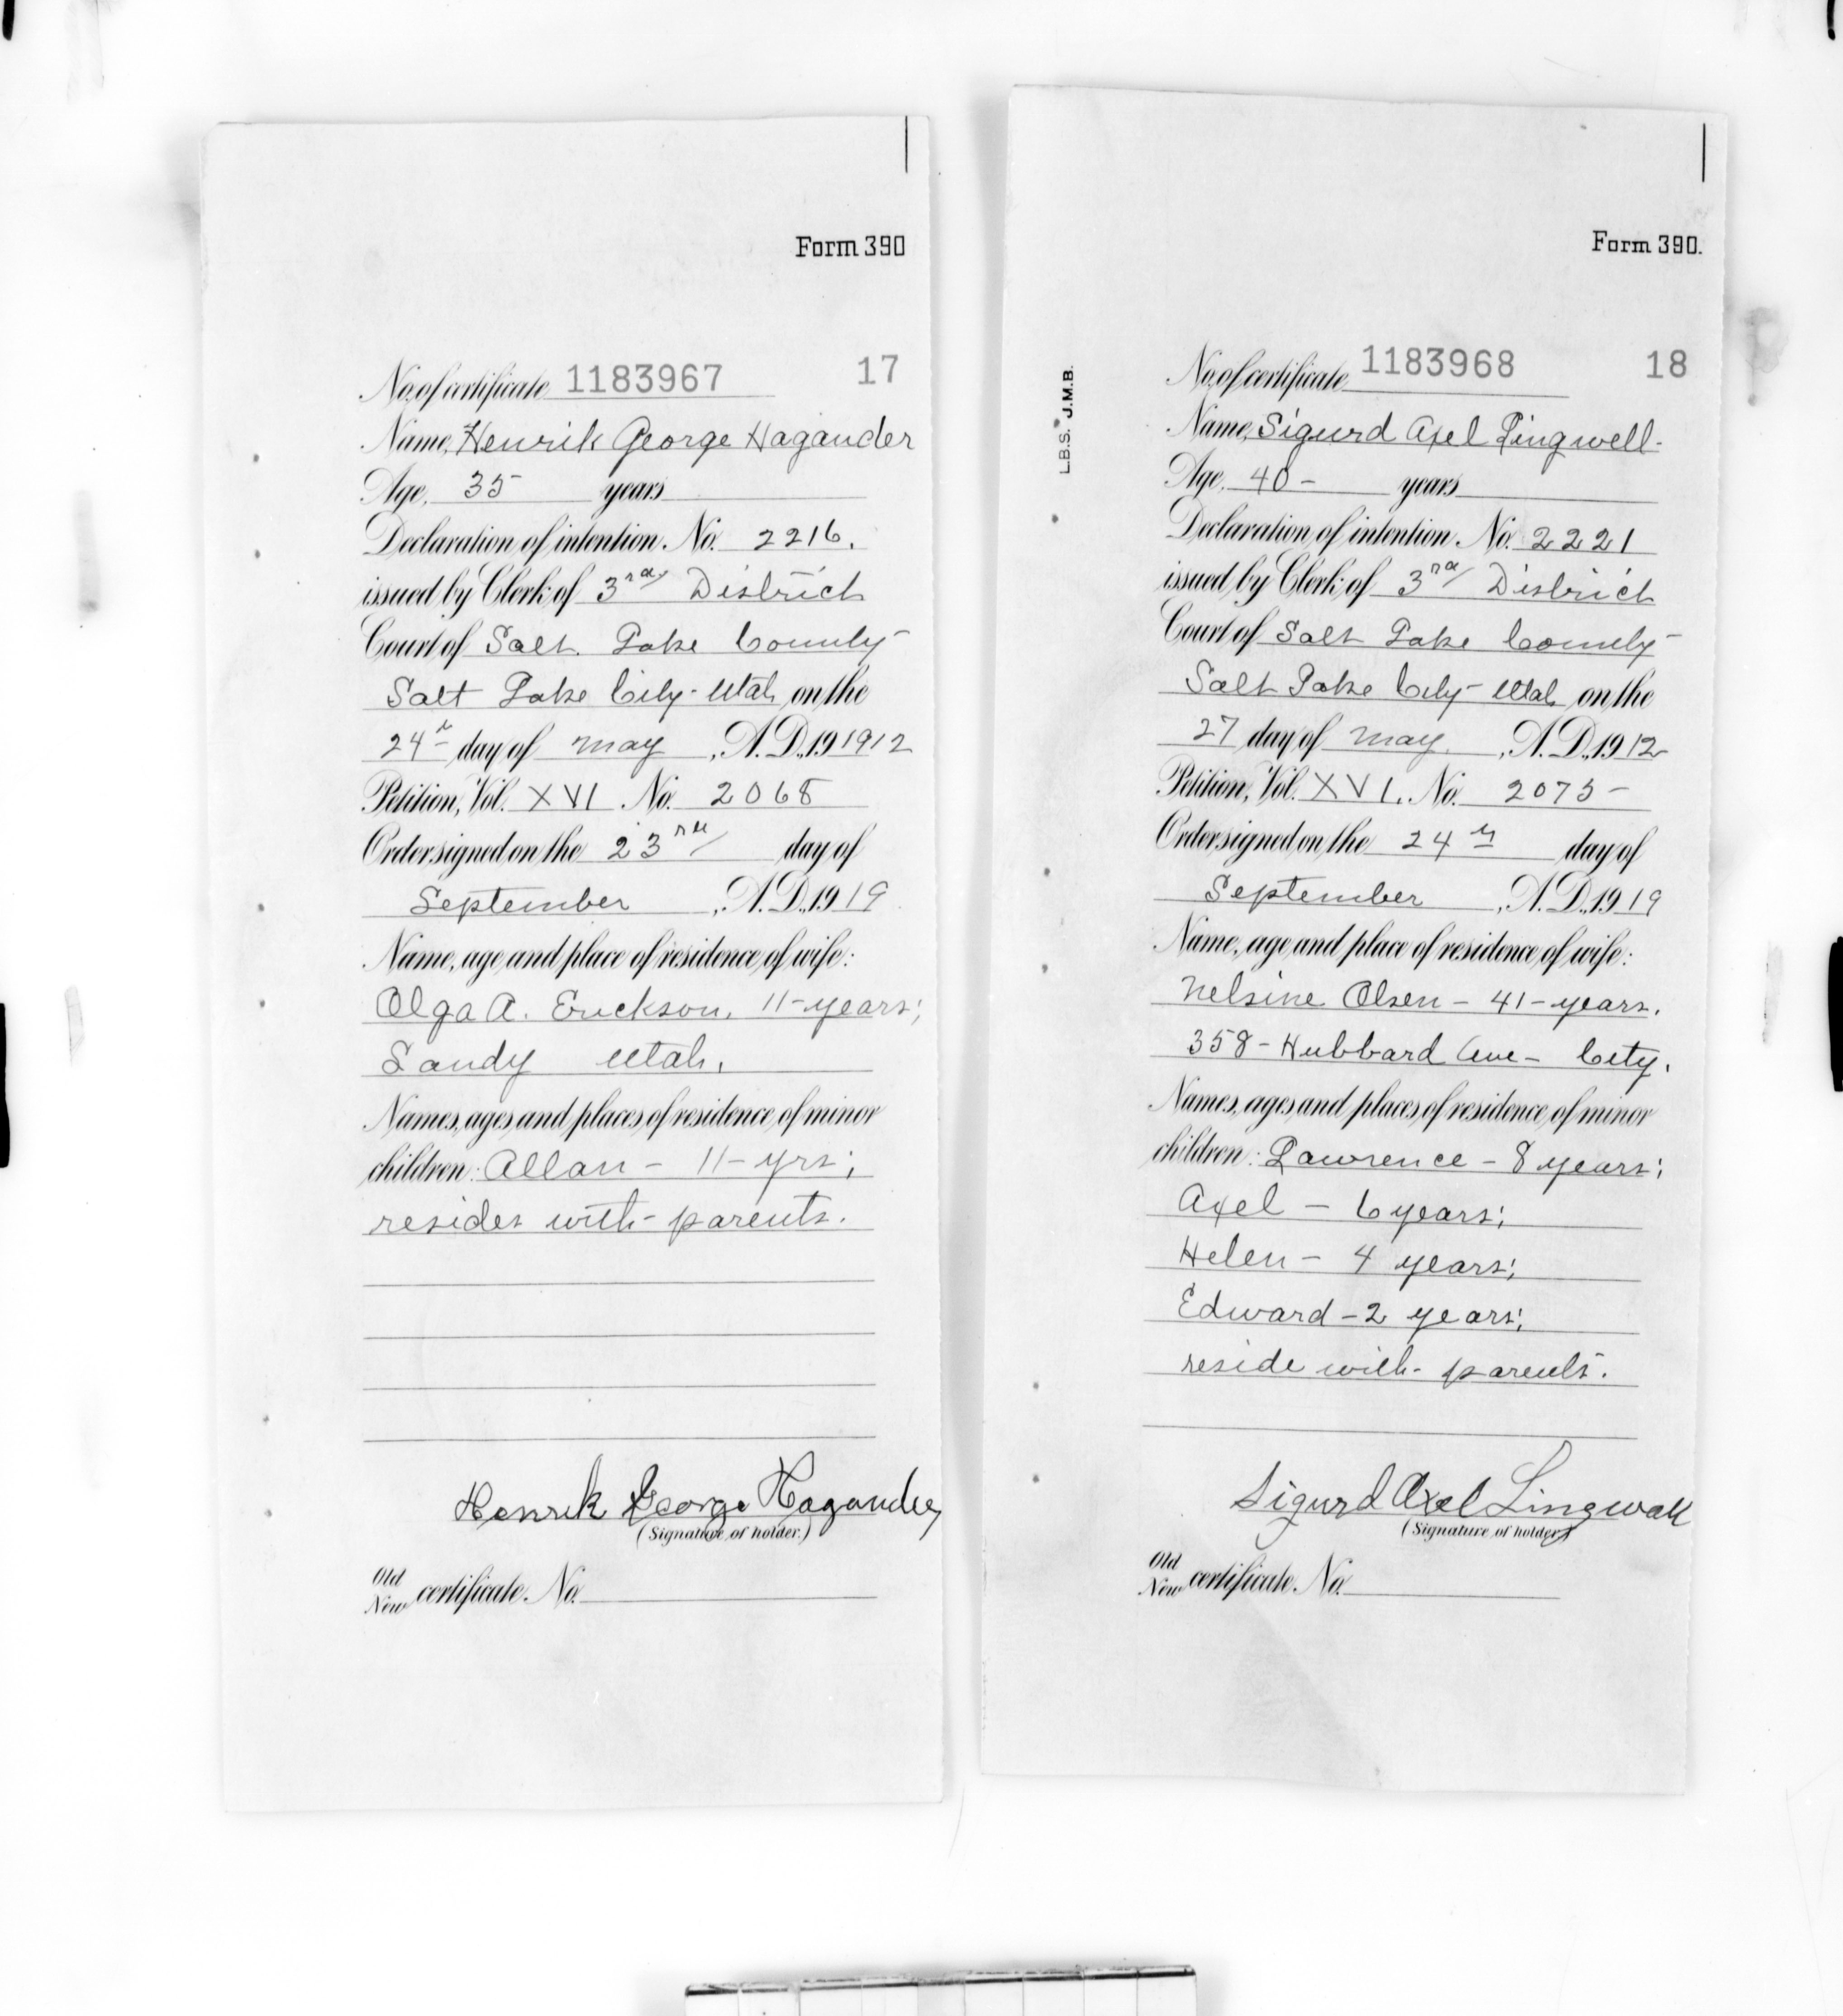 Form 390
No. of certificate 1183967 17
Name, Henrik George Hagander
Age, 35 years
Declaration of intention No. 2216.
issued by Clerk of 3rd District
Court of Salt Lake County
Salt Lake City - Utah on the
24th day of May, A.D. 191912
Petition, Vol. XVI No. 2068
Order signed on the 23rd day of
September, A.D. 1919
Name, age and place of residence of wife:
Olga A. Erickson, 11 - years;
Sandy Utah.
Names, ages and places of residence of minor
children: Allan - 11 - yrs;
resides with - parents.
Henrik George Hagander
(Signature of holder)
Old
New certificate No.
Form 390.
L.B.S. J.M.B.
No. of certificate 1183968 18
Name, Sigurd Axel Lingwell -
Age, 40 - years
Declaration of intention No. 2221
issued by Clerk of 3rd District
Court of Salt Lake County
Salt Lake City - Utah on the
27 day of May, A.D. 1912
Petition, Vol. XVI. No. 2075 -
Order signed on the 24th day of
September, A.D. 1919
Name, age and place of residence of wife:
Nelsine Olsen - 41 - years.
358 - Hubbard Ave - City.
Names, ages and places of residence of minor
children: Lawrence - 8 years;
Axel - 6 years;
Helen - 4 years;
Edward - 2 years;
reside with - parents.
Sigurd Axel Lingwall
(Signature of holder)
Old
New certificate No.